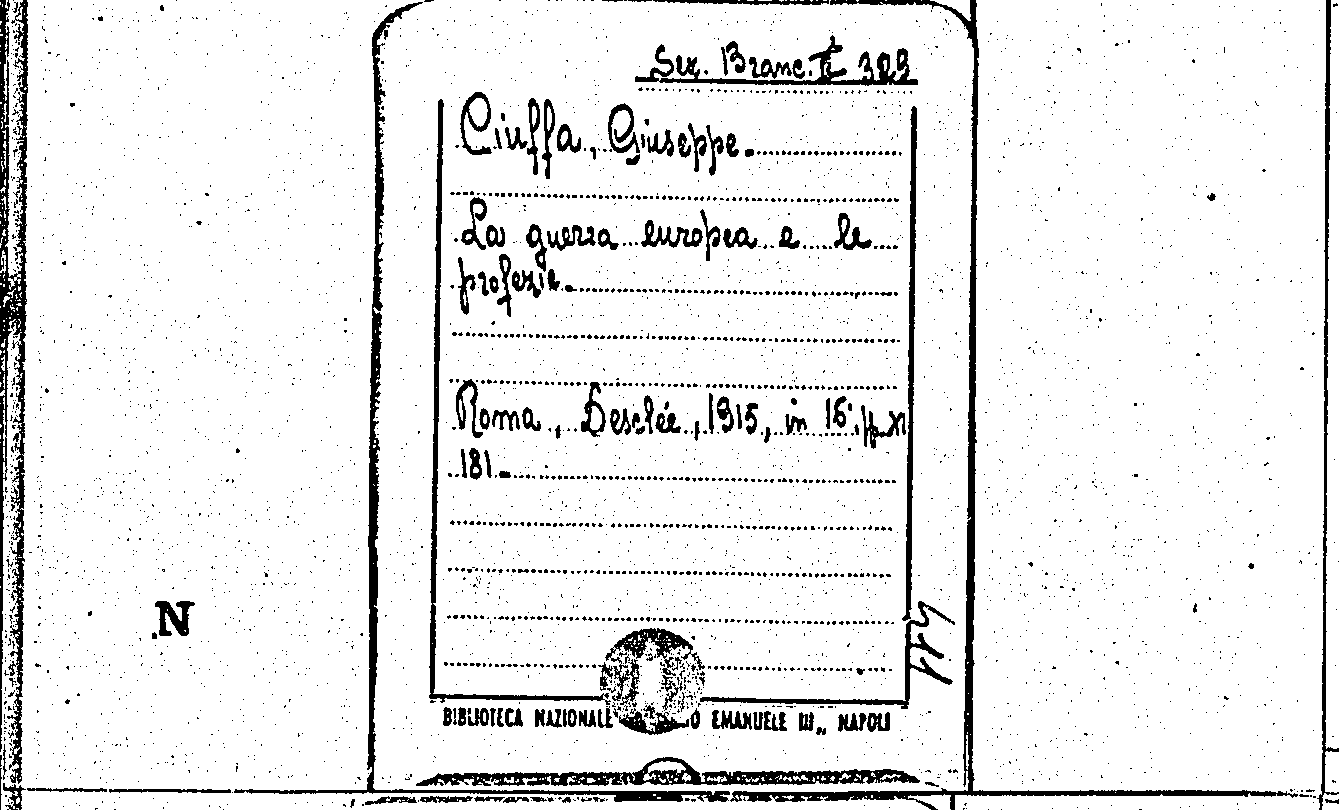 Sez. Branc. II 389
Ciuffa, Giuseppe.
La guerra europea e le
profezie.
Roma, Desclée, 1915, in 16°. pp. XI
181.
N
BIBLIOTECA NAZIONALE EMANUELE III„ NAPOLI